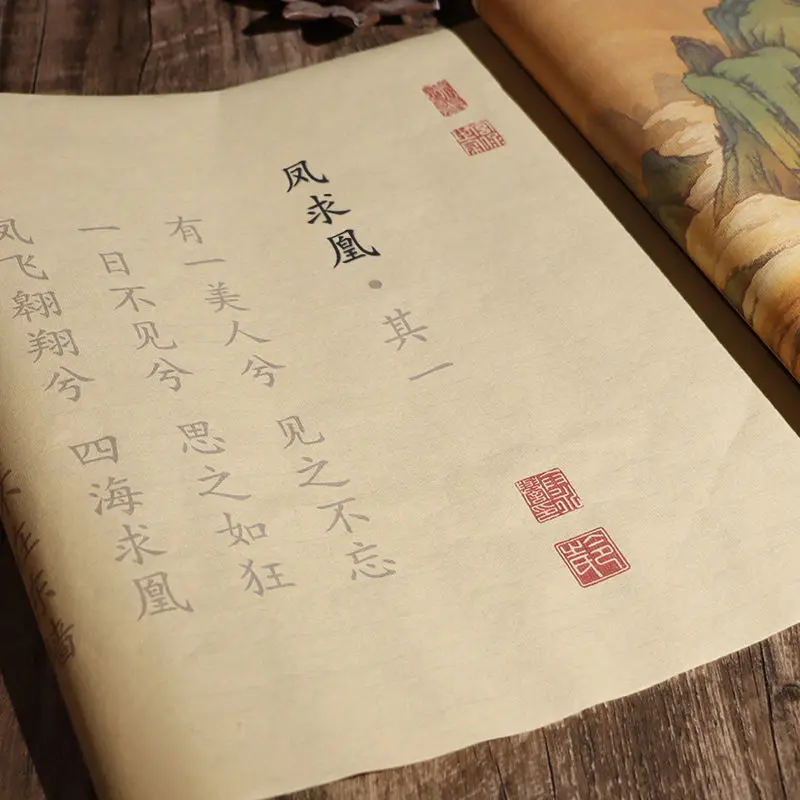 凤求凰·其一
有一美人兮 见之不忘
一日不见兮 思之如狂
凤飞翱翔兮 四海求凰